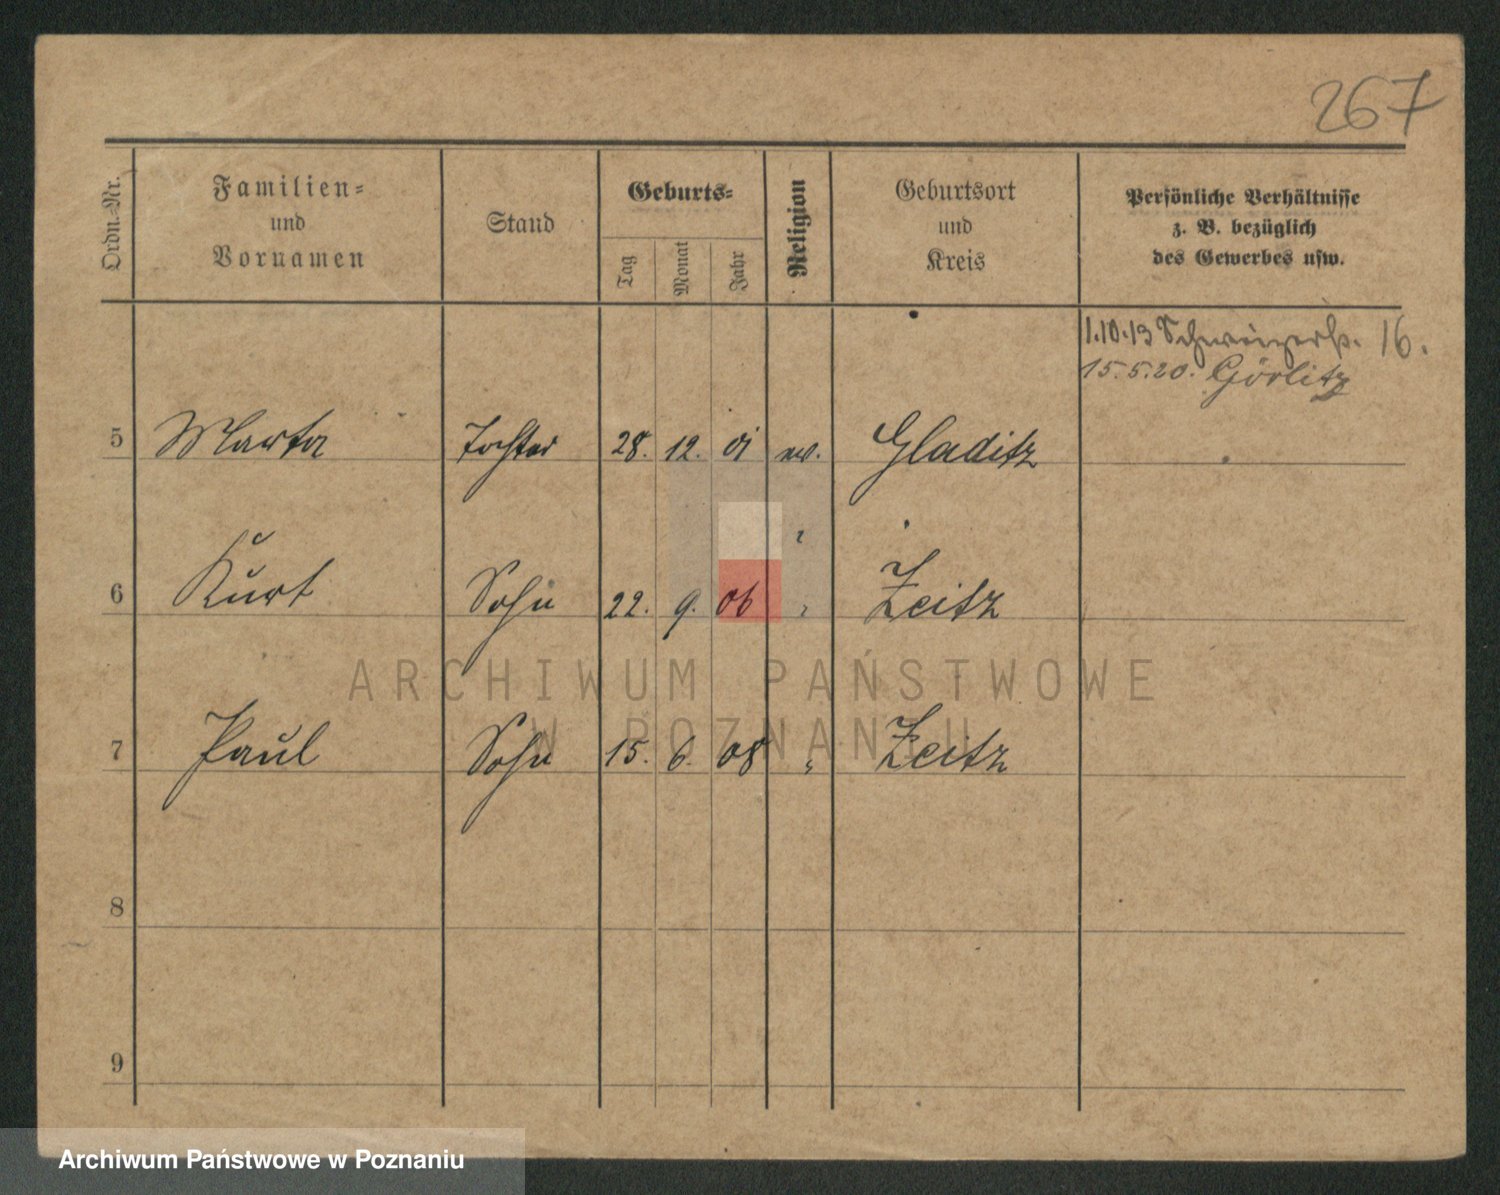 267
Ordn.-Nr.
Familien-
und
Vornamen
Stand
Geburts-
Tag
Monat
Jahr
Religion
Geburtsort
und
Kreis
Persönliche Verhältnisse
z. B. bezüglich
des Gewerbes usw.
1.10.13 16.
15.5.20. Görlitz
5 Marta Tochter 28. 12. 01 ev. Gladitz
6 Kurt Sohn 22. 9. 06 " Zeitz
7 Paul Sohn 15. 6. 08 " Zeitz
8
9
ARCHIWUM PAŃSTWOWE
W POZNANIU
Archiwum Państwowe w Poznaniu